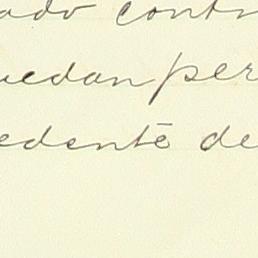 ado contr
uedan per
edente de